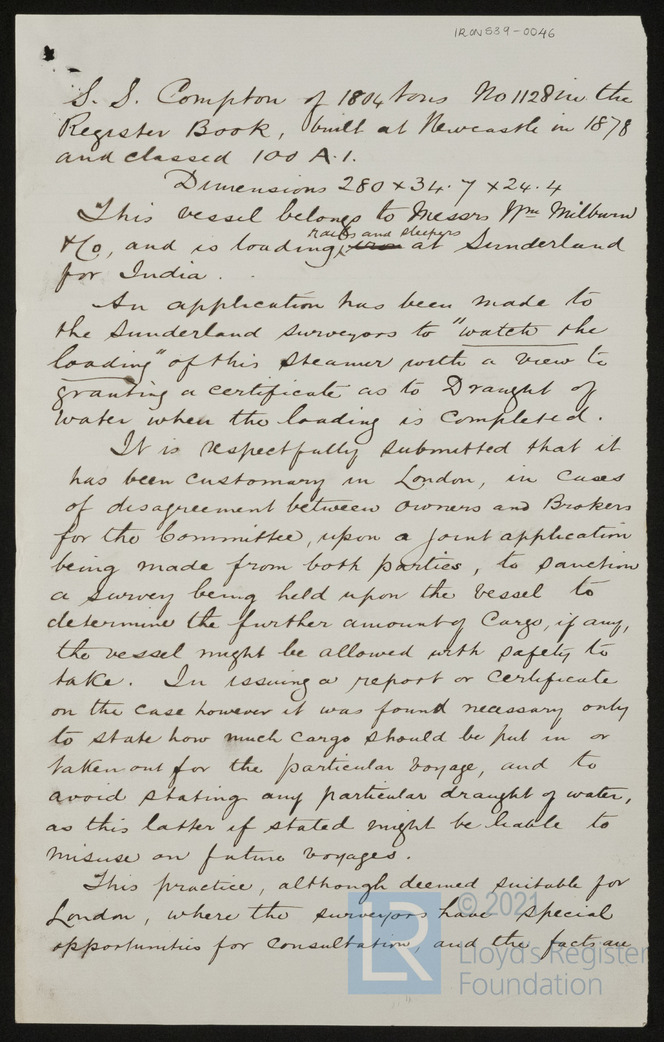 IRON539-0046
S. S. Compton of 1804 tons No 1128 in the
Register Book, built at Newcastle in 1878
and classed 100 A.1.
Dimensions 280 x 34.7 x 24.4
This vessel belongs to Messrs Wm Milburn
rails and sleepers
& Co, and is loading iron at Sunderland
for India.
An application has been made to
the Sunderland surveyors to "watch the
loading" of this steamer with a view to
granting a certificate as to Draught of
water when the loading is completed.
It is respectfully submitted that it
has been customary in London, in cases
of disagreement between owners and Brokers
for the Committee, upon a joint application
being made from both parties, to sanction
a survey being held upon the vessel to
determine the further amount of Cargo, if any,
the vessel might be allowed with safety to
take. In issuing a report or certificate
on the case however it was found necessary only
to state how much cargo should be put in or
taken out for the particular voyage, and to
avoid stating any particular draught of water,
as this latter if stated might be liable to
misuse on future voyages.
This practice, although deemed suitable for
London, where the surveyors have special
opportunities for consultation, and the facts are
© 2021
LR
Lloyd's Register
Foundation